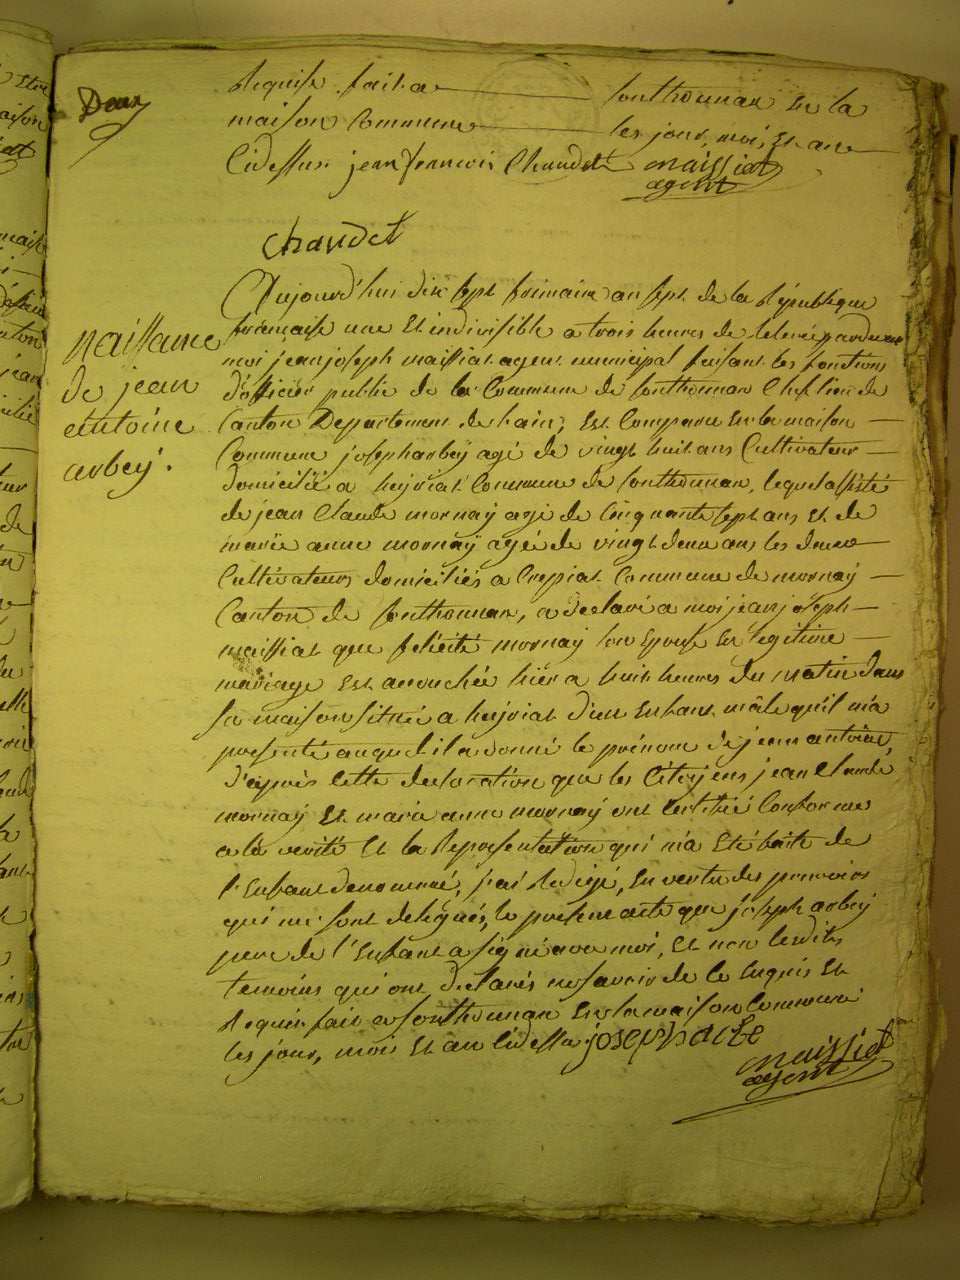 Deux
Requise fait a Sonthonnax en la
maison Commune les jour, mois, et an
Cidessus. jean françois Chaudet maissiat
agent
chaudet
naissance
de jean
antoine
arbey.
Aujourd'hui dix sept frimaire an sept de la République
française une et indivisible a trois heures de relevée pardevant
moi jean joseph maissiat agent municipal faisant les fonctions
d'officier public de la Commune de Sonthonnax Cheflieu de
Canton Departement de l'ain, est Comparu en la maison
Commune joseph arbey agé de vingt huit ans Cultivateur
domicilié a heyriat Commune de Sonthonnax, lequel assisté
de jean Claude mornay agé de Cinquante sept ans et de
marie anne mornaÿ agée de vingt deux ans les deux
Cultivateurs domiciliés a Crepiat Commune de mornay
Canton de Sonthonnax, a declaré a moi jean joseph
maissiat que felicité mornay son epouse en legitime
mariage est accouchée hier a huit heures du matin dans
sa maison située a heyriat d'un enfant mâle qu'il m'a
presenté auquel il a donné le prénom de jean antoine,
d'après cette declaration que les Citoyens jean Claude
mornay et marie anne mornay ont certifié Conforme
a la verité et la Representation qui m'a eté faite de
l'enfant denommé, j'ai Redigé, en vertu des pouvoirs
qui me sont delegués, le present acte que joseph arbey
pere de l'enfant a signé avec moi, et non lesdits
temoins qui ont declarés ne savoir de ce enquis et
Requis. fait a Sonthonnax en la maison Commune
les jour, mois et an Cidessus joseph arbe
maissiat
agent